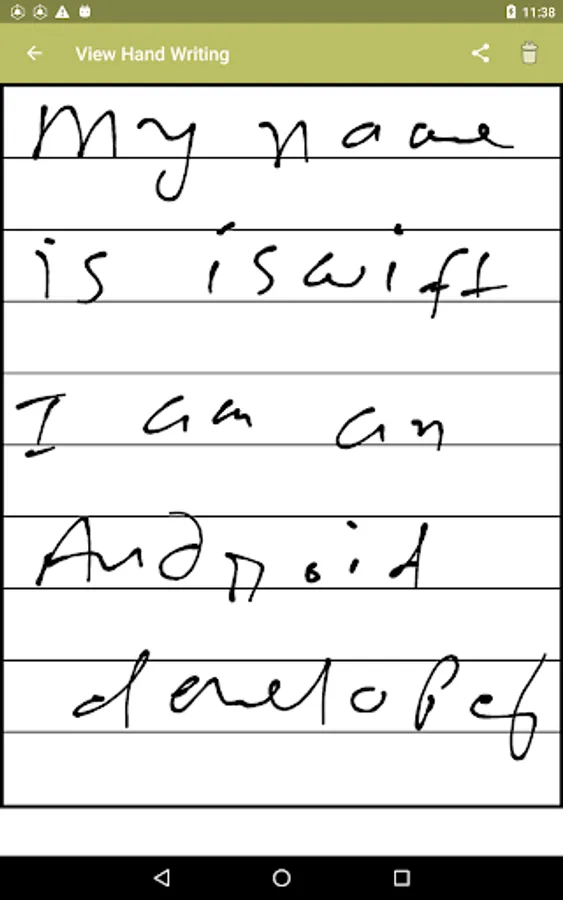 11:38
View Hand Writing
My name
is iswift
I am an
Android
developer